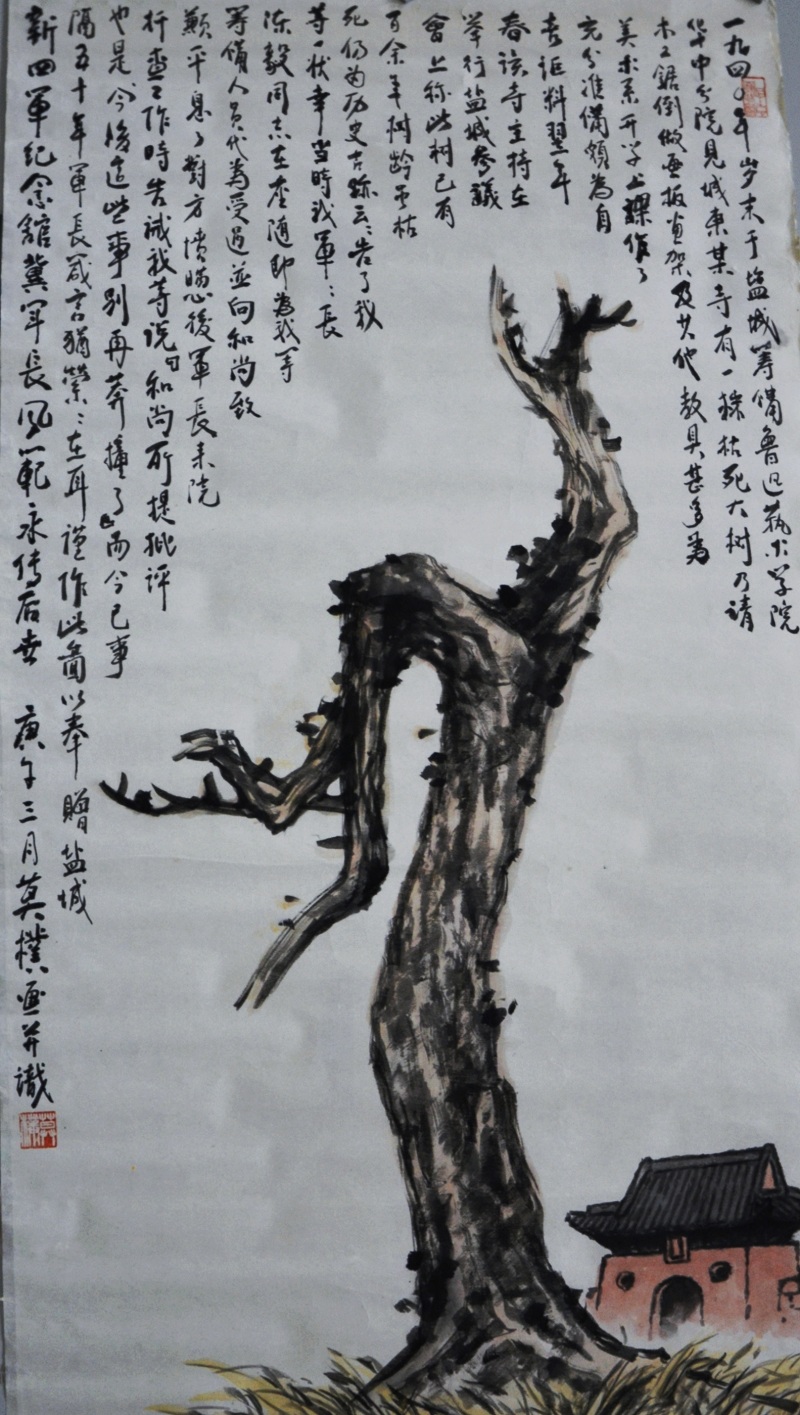 一九四〇年岁末于盐城筹备鲁迅艺术学院
华中分院见城东某寺有一株枯死大树乃请
木工锯倒做画板画架及其他教具甚多为
美术系开学上课作了
充分准备颇为自
喜讵料翌年
春该寺主持在
举行盐城参议
会上称此树已有
百余年树龄虽枯
死仍为历史古迹云云告了我
等一状幸当时我军军长
陈毅同志在座随即为我等
筹备人员代为受过并向和尚致
歉平息了对方愤懑心后军长来院
检查工作时告诫我等说和尚所提批评
也是今后这些事别再莽撞了而今已事
隔五十年军长箴言犹萦萦在耳谨作此图以奉赠盐城
新四军纪念馆冀军长风范永传后世 庚午三月莫樸画并识
莫樸